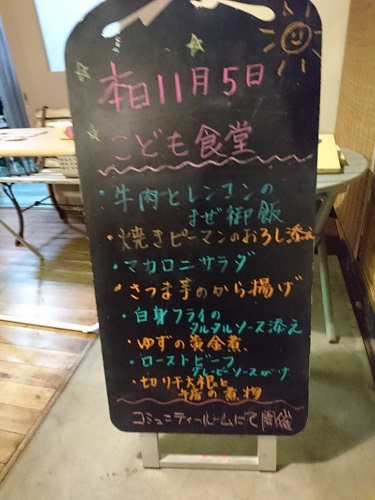 本日11月5日
こども食堂
・牛肉とレンコンの
まぜ御飯
・焼きピーマンのおろし添え
・マカロニサラダ
・さつま芋のから揚げ
・白身フライの
タルタルソース添え
・ゆずの黄金煮
・ローストビーフ
グレービーソースがけ
・切り干大根と
の煮物
コミュニティールームにて開催